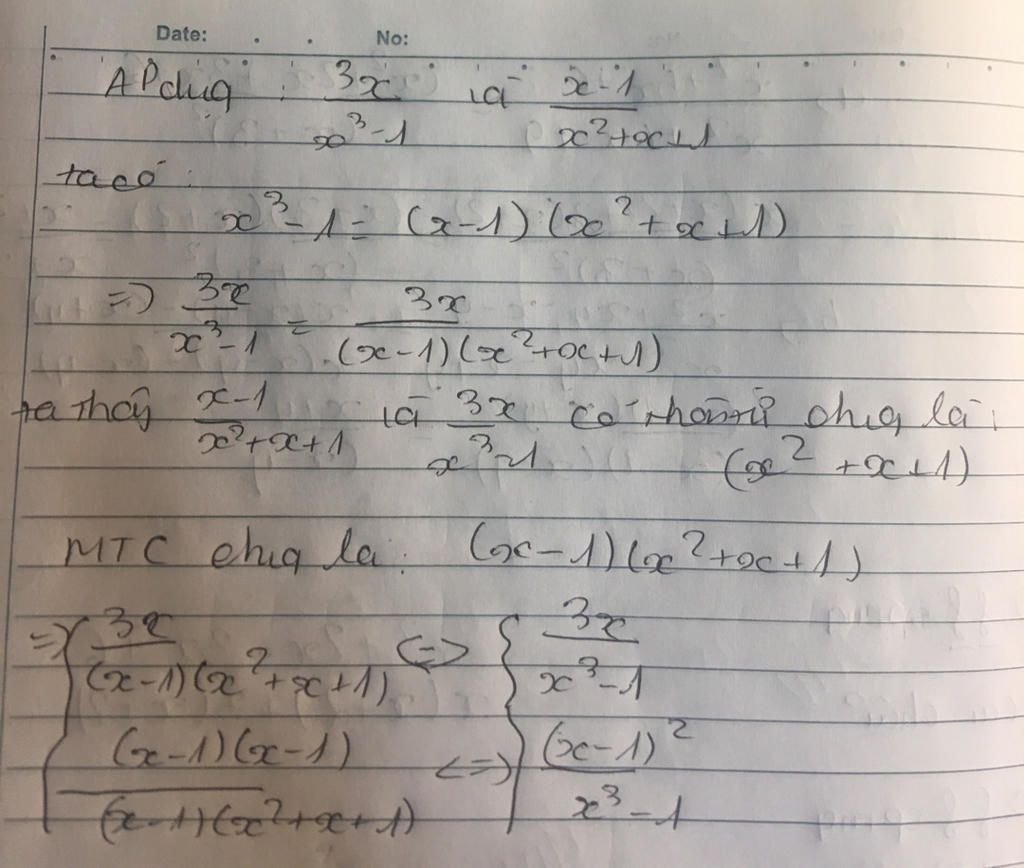 Date: . . No:
APdụg : 3x/x³-1 và x-1/x²+x+1
ta có :
x³-1 = (x-1)(x²+x+1)
=> 3x/x³-1 = 3x/(x-1)(x²+x+1)
ta thấy x-1/x²+x+1 và 3x/x³-1 có nhântử chug là :
(x²+x+1)
MTC chug là : (x-1)(x²+x+1)
=> { 3x/(x-1)(x²+x+1) <=> { 3x/x³-1
(x-1)(x-1)/(x-1)(x²+x+1) <=> (x-1)²/x³-1